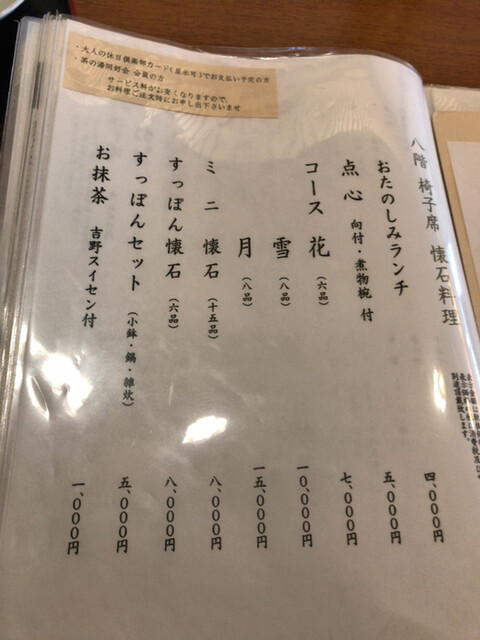 ・大人の休日倶楽部カードでお支払い予定の方
・茶の湯同好会 会員の方
サービス料がお安くなりますので、
お料理ご注文時にお申し出下さいませ
八階 椅子席 懐石料理
別途頂戴致します。
おたのしみランチ 四、〇〇〇円
点心 向付・煮物椀 付 五、〇〇〇円
コース 花 (六品) 七、〇〇〇円
雪 (八品) 一〇、〇〇〇円
月 (八品) 一五、〇〇〇円
ミニ懐石 (十五品) 八、〇〇〇円
すっぽん懐石 (六品) 八、〇〇〇円
すっぽんセット (小鉢・鍋・雑炊) 五、〇〇〇円
お抹茶 吉野スイセン付 一、〇〇〇円